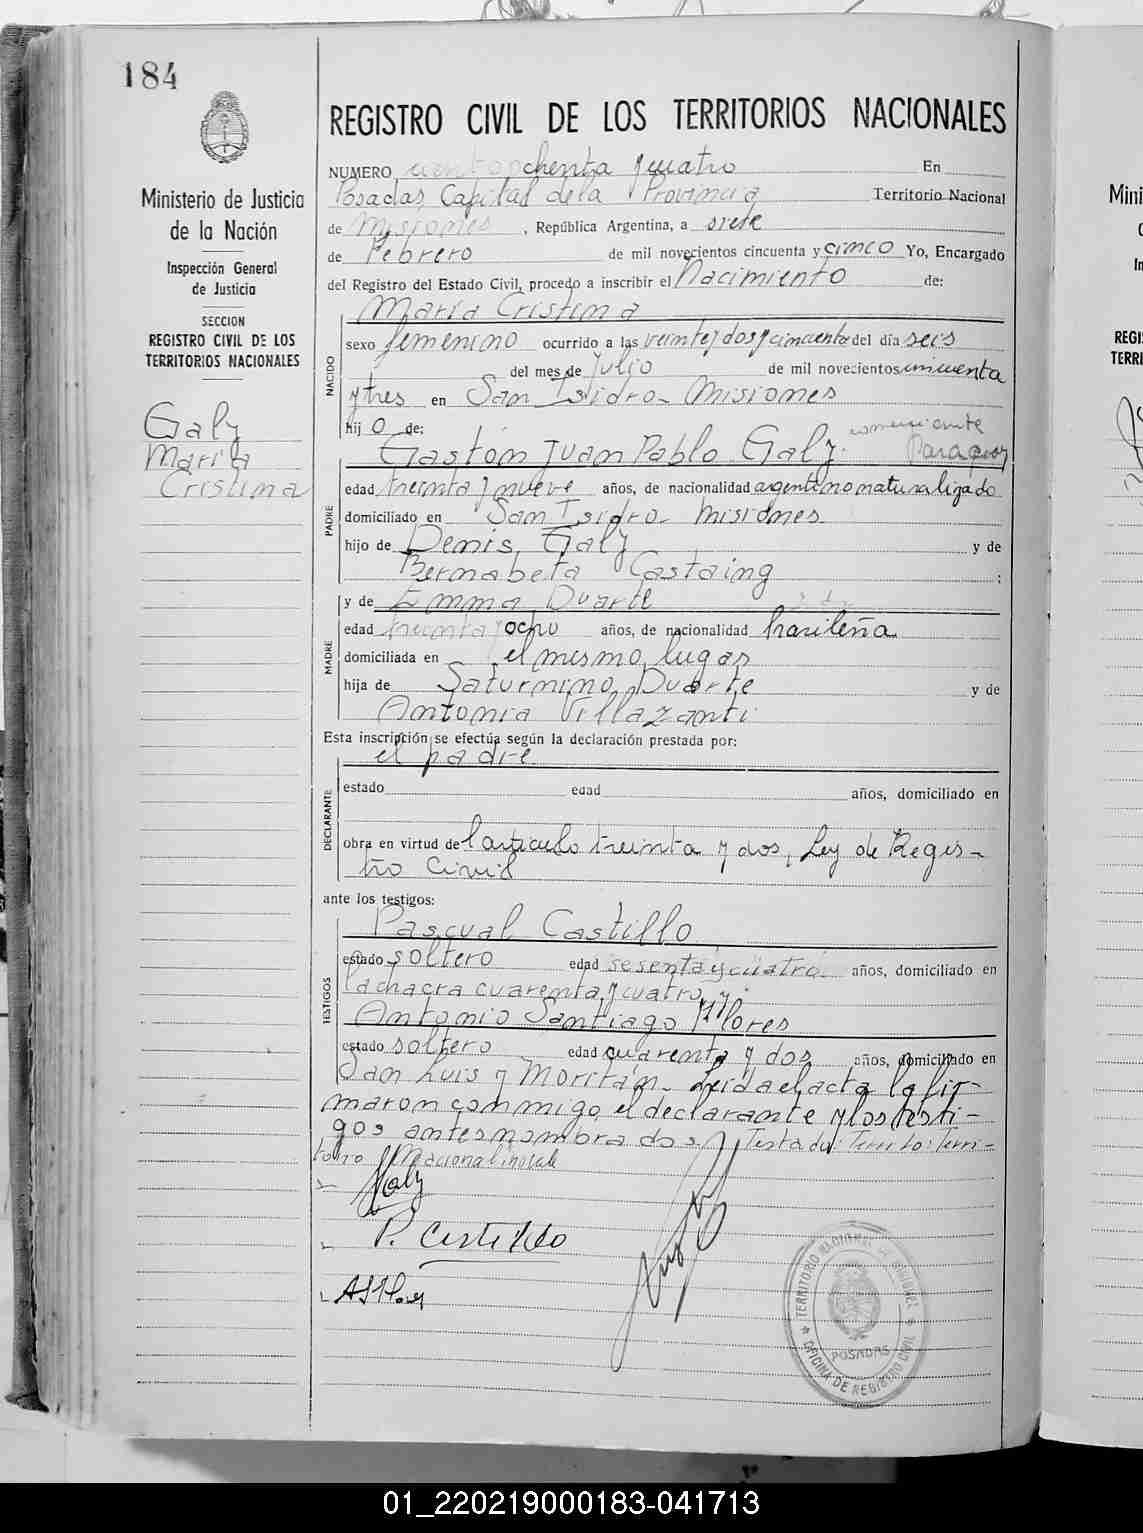 184
REGISTRO CIVIL DE LOS TERRITORIOS NACIONALES
Ministerio de Justicia
de la Nación
Inspección General
de Justicia
SECCION
REGISTRO CIVIL DE LOS
TERRITORIOS NACIONALES
Galy
María
Cristina
NUMERO ciento ochenta y cuatro En
Posadas Capital de la Provincia Territorio Nacional
de Misiones, República Argentina, a siete
de Febrero de mil novecientos cincuenta y cinco Yo, Encargado
del Registro del Estado Civil, procedo a inscribir el Nacimiento de:
María Cristina
NACIDO
sexo femenino ocurrido a las veinte y dos y cincuenta del día seis
del mes de Julio de mil novecientos cincuenta
y tres en San Isidro - Misiones
hij o de:
Gastón Juan Pablo Galy. comerciante
Paraguay
PADRE
edad treinta y nueve años, de nacionalidad argentino naturalizado
domiciliado en San Isidro - Misiones
hijo de Denis Galy y de
Bernabeta Castaing ;
y de Emma Duarte
MADRE
edad treinta y ocho años, de nacionalidad brasileña
domiciliada en el mismo lugar
hija de Saturnino Duarte y de
Antonia Villazanti
Esta inscripción se efectúa según la declaración prestada por:
el padre
DECLARANTE
estado edad años, domiciliado en
obra en virtud del artículo treinta y dos, Ley de Regis-
tro Civil
ante los testigos:
Pascual Castillo
TESTIGOS
estado soltero edad sesenta y cuatro años, domiciliado en
la chacra cuarenta y cuatro, y
Antonio Santiago Flores
estado soltero edad cuarenta y dos años, domiciliado en
San Luis y Moritán - Leida el acta la fir-
maron conmigo, el declarante y los testi-
gos antes nombrados. Testado: Terri-
torio Nacional
Galy
P. Castillo
ASFlores
TERRITORIO NACIONAL DE MISIONES
POSADAS
OFICINA DE REGISTRO CIVIL
Mini
In
REGI
TERRI
01_220219000183-041713